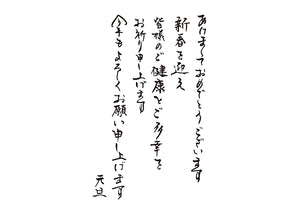 あけましておめでとうございます
新春を迎え
皆様のご健康とご多幸を
お祈り申し上げます
今年もよろしくお願い申し上げます
元旦